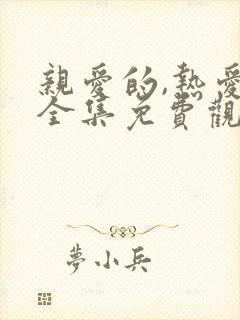 親愛的,熱愛
全集免費觀
夢小兵